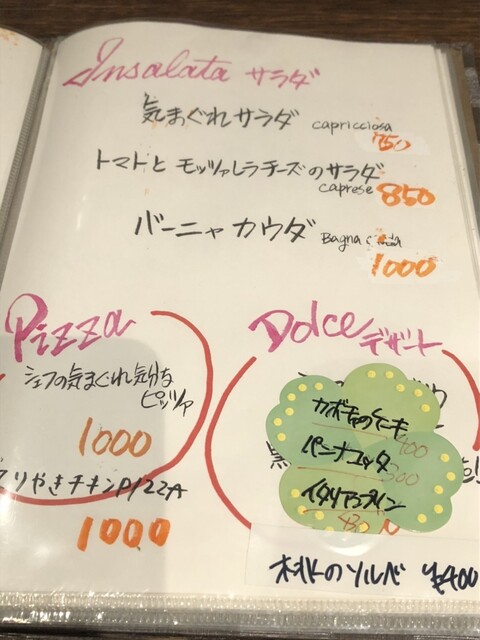 Insalata サラダ
気まぐれサラダ capricciosa
750
トマトと モッツァレラチーズのサラダ
caprese 850
バーニャカウダ Bagna
1000
Pizza
シェフの気まぐれ気分な
ピッツァ
1000
りやきチキンPIZZA
1000
Dolce デザート
カボチャのケーキ
400
パンナコッタ
300
イタリアンプリン
桃のソルベ ¥400